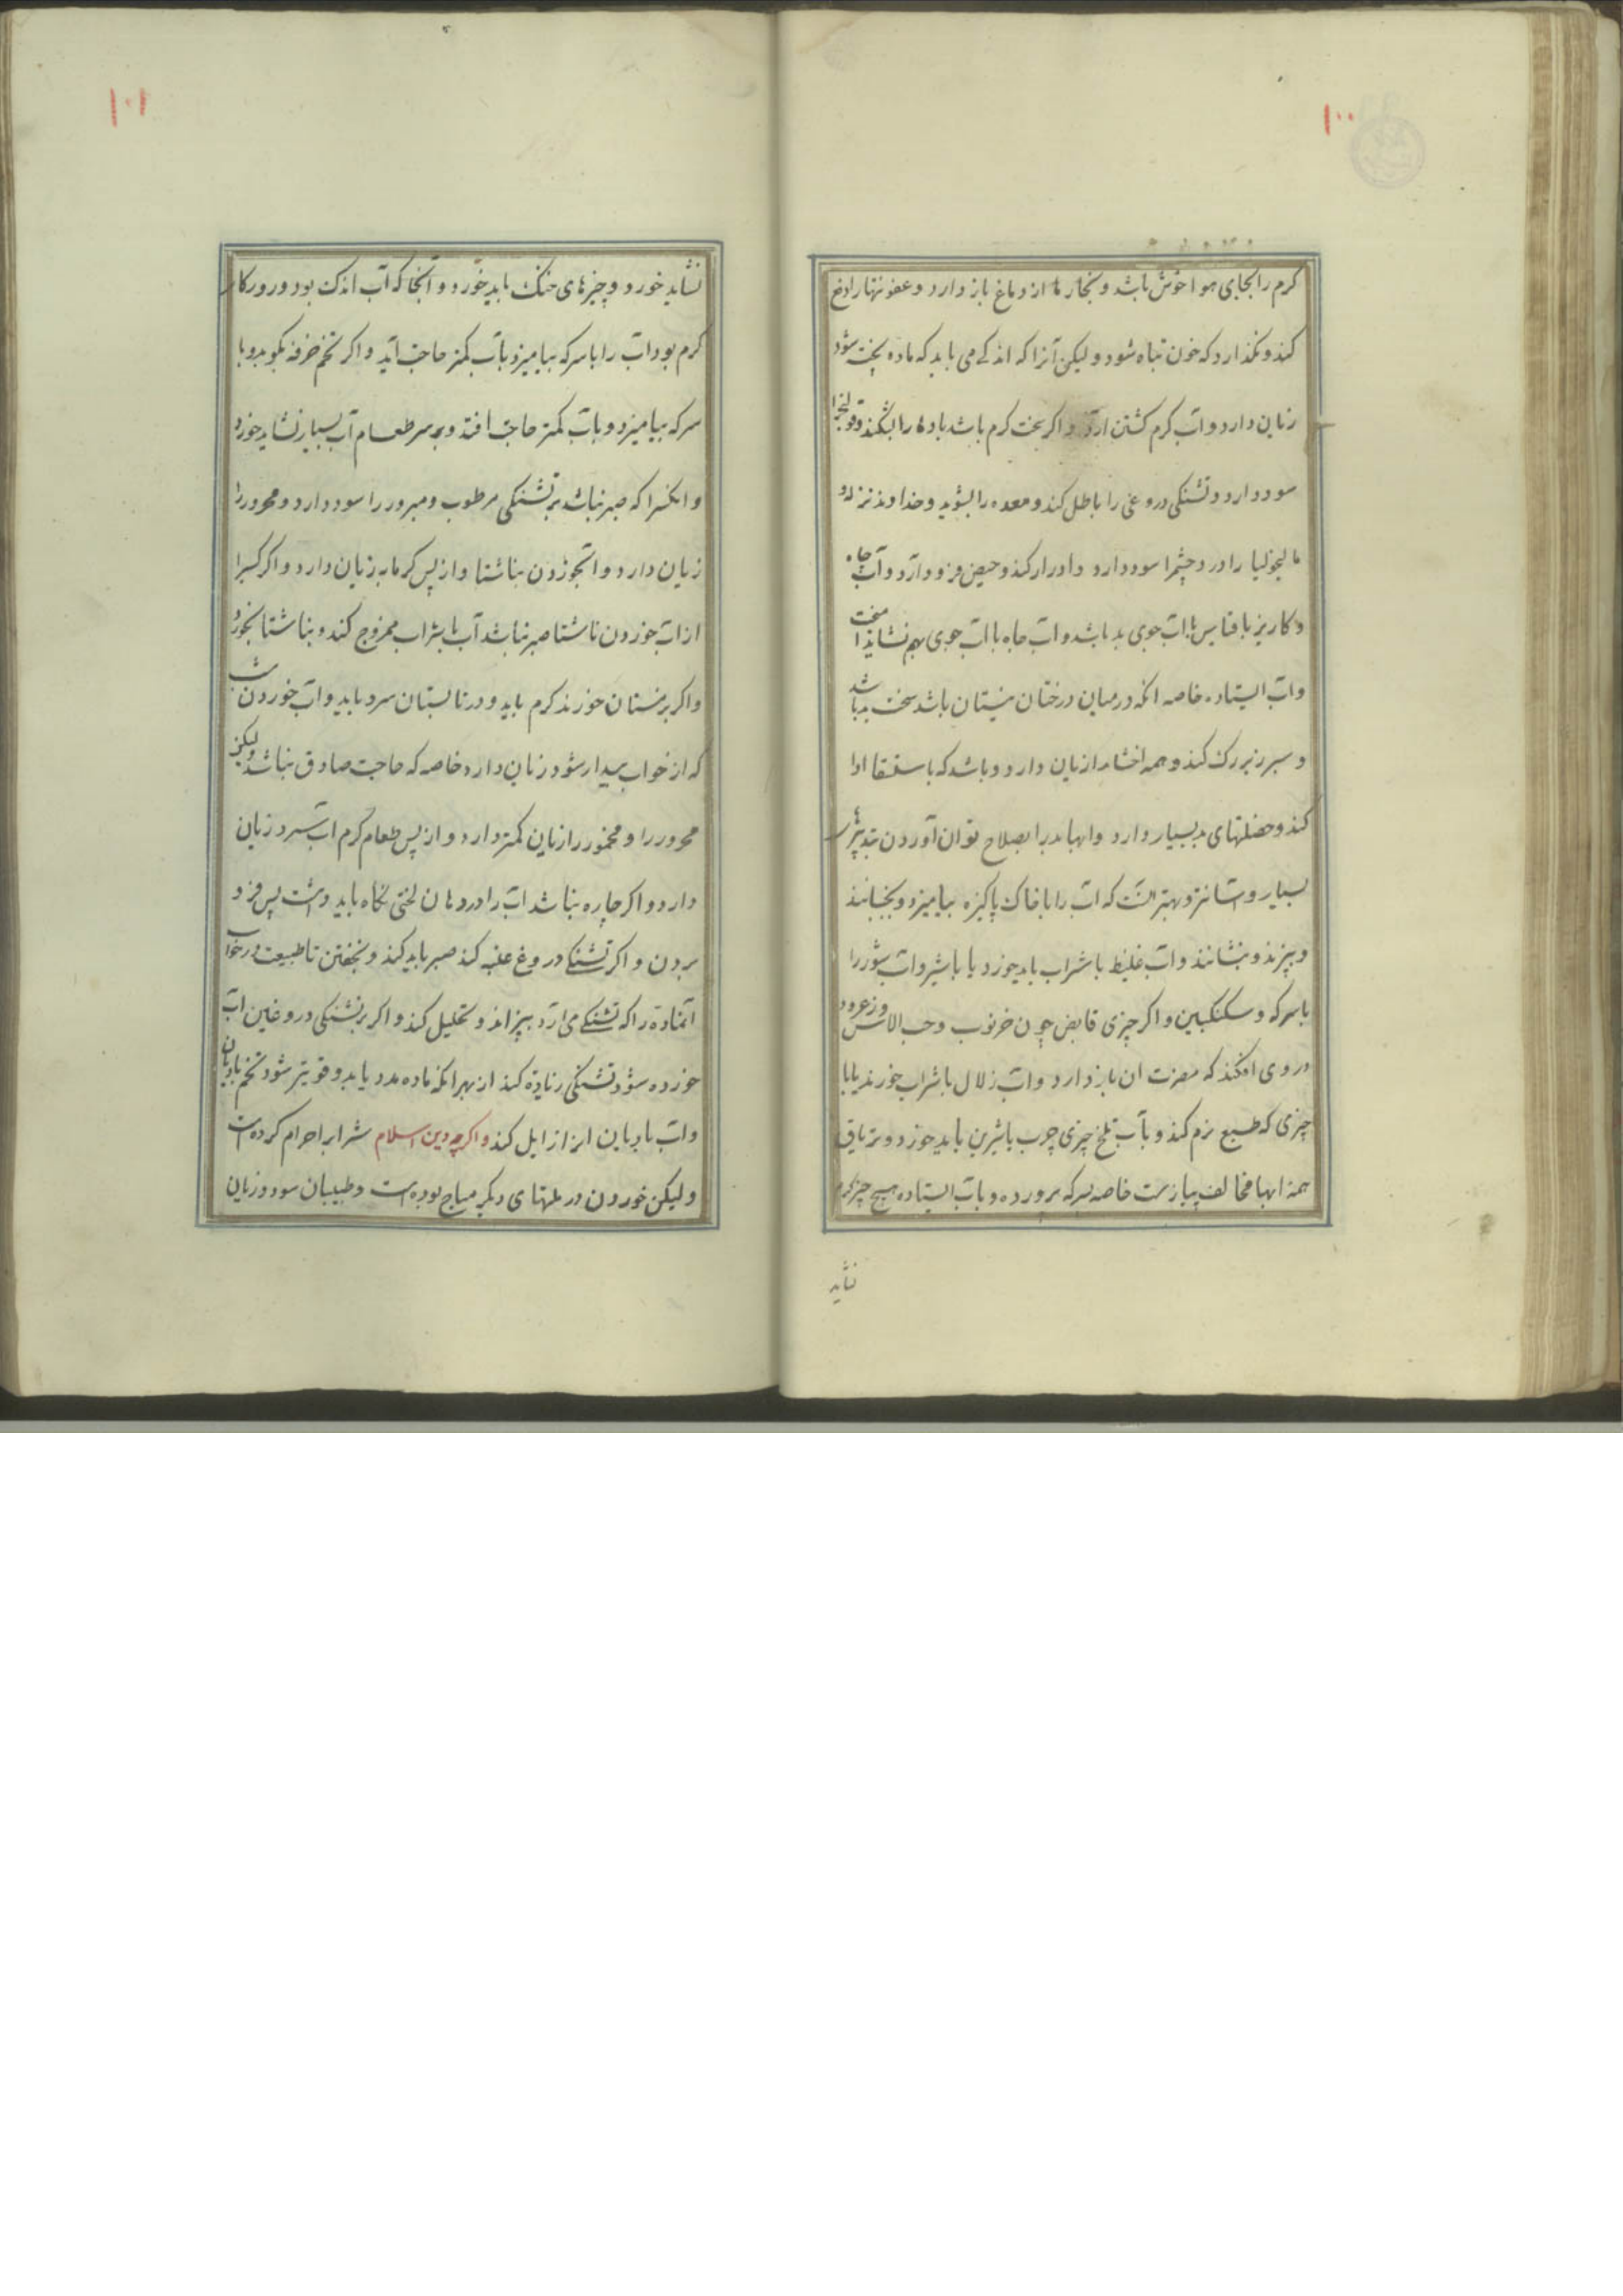 ۱۰۰
کرم را بجای هوا خوش باشد و بخارها از دماغ باز دارد و عفونتها را دفع
کند و نکذارد که خون تباه شود و لیکن آنرا که اندکے می باید که ماده پخته شود
زیان دارد و آب کرم کشتن آرد و اکر سخت کرم باشد بادها را بشکند و قولنج را
سود دارد و تشنکی دروغی را باطل کند و معده را بشوید و خداوند نزله و
مالیخولیا را و درد چشم را سود دارد و ادرار کند و حیض فرود آرد و آب چاه
و کاریز باقیاس با آب جوی بد باشد و آب چاه با آب جوی بهم نشاید آمیخت
و آب ایستاده خاصه انکه در میان درختان نیستان باشد سخت بد باشد
و سپرز بزرک کند و همه احشا را زیان دارد و باشد که باستسقا ادا
کند و خصلتهای بد بسیار دارد و ابهاء بد را بصلاح توان آوردن بتدبیرهاء
بسیار و آسانتر و بهتر آنست که آب را با خاک پاکیزه بیامیزد و بجنبانند
و بپزند و بنشانند و آب غلیظ با شراب باید خورد یا با شیر و آب شور را
با سرکه و سکنکبین و اکر چیزی قابض چون خرنوب و حب الاس و زعرور
در وی افکند که مضرت ان باز دارد و آب زلال با شراب خورند یا با
چیزی که طبع نرم کند و با آب تلخ چیزی چرب یا شیرین باید خورد و تریاق
همه ابها مخالف پیازست خاصه بسرکه پرورده و با آب ایستاده هیچ چیز کرم
نشاید
۱۰۱
نشاید خورد و چیزهای خنک باید خورد و آنجا که آب اندک بود و روزکار
کرم بود آب را با سرکه بیامیزد بآب کمتر حاجت آید و اکر تخم خرفه بکوبد و با
سرکه بیامیزد و بآب کمتر حاجت افتد و بر سر طعام آب بسیار نشاید خورد
و انکس را که صبر نباشد بر تشنکی مرطوب و مبرور را سود دارد و محرور را
زیان دارد و آب خوردن بناشتا و از پس کرمابه زیان دارد و اکر کسی را
از آب خوردن ناشتا صبر نباشد آب با شراب ممزوج کند و بناشتا بخورد
و اکر بزمستان خورند کرم باید و در تابستان سرد باید و آب خوردن شب
که از خواب بیدار شود زیان دارد خاصه که حاجت صادق نباشد و لیکن
محرور را و مخمور را زیان کمتر دارد و از پس طعام کرم آب سرد زیان
دارد و اکر چاره نباشد آب را در دهان لختی نکاه باید داشت پس فرو
بردن و اکر تشنکے دروغ غلبه کند صبر باید کند و بخفتن تا طبیعت در خواب
آنماده را که تشنکے می آرد بپزاند و تحلیل کند و اکر بر تشنکی دروغین آب
خورده شود تشنکی زیادة کند از بهر انکه ماده مدد یابد و قویتر شود تخم بادیان
و آب بادیان انرا زایل کند و اکر چه دین اسلام شراب را حرام کرده است
و لیکن خوردن در ملتهای دیکر مباح بوده است و طبیبان سود و زیان